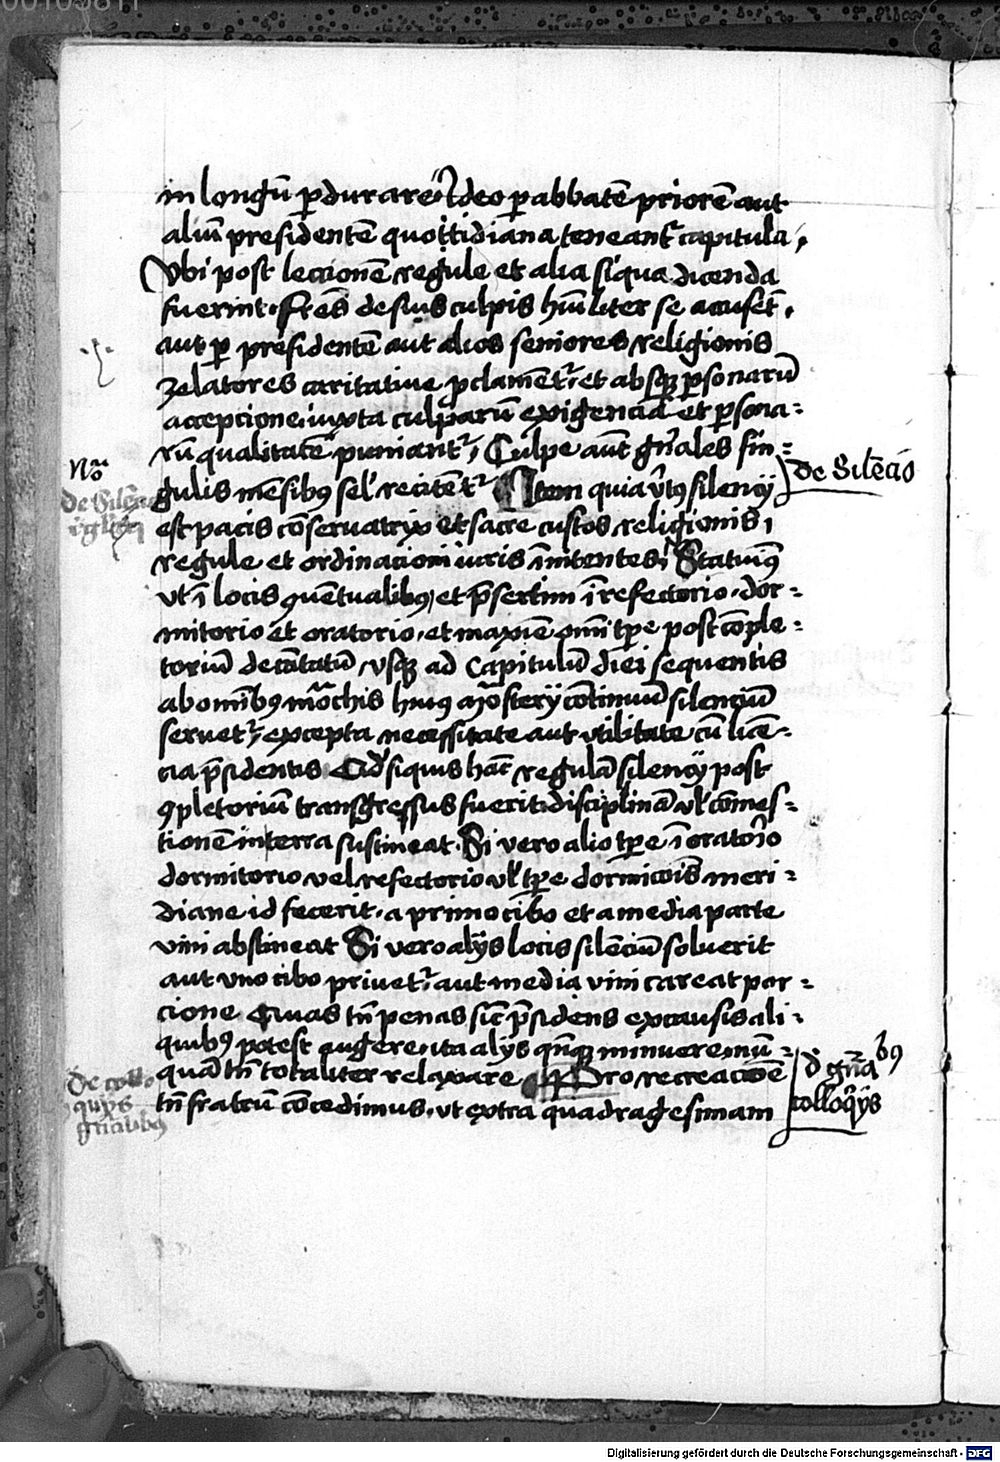 in longū ꝑdurare Ideo ꝑ abbatē priorē aut
aliū presidentē quottidiana teneant᷑ capitula,
Vbi post leccionē regule et alia siqua dicenda
fuerint. Fr̄es de suis culpis hūiliter se accusēt.
aut ꝑ presidentē aut alios seniores religionis
zelatores caritatiue ꝓclament᷑, et absqꝫ ꝑsonarū
accepcione, iuxta culparū exigenciā et ꝑsona-
rū qualitatē puniant᷑, Culpe aūt gn̄ales sin-
gulis mēsibꝰ sel̄ recitent᷑ Item quia v̓tꝰ silencij
est pacis cōseruatrix et sacre custos religionis,
regule et ordinacioni iuris īnitentes, Statuimꝰ
vt ī locis ꝯuentualibꝰ, et p̄sertim ī refectorio, dor-
mitorio et oratorio, et maxīe om̄i tp̄e post cōple-
toriū decātatū, vsqꝫ ad Capitulū diei sequentis
ab om̄ibꝰ mōchis huiꝰ mōsterij cōtinuū silenciū
seruet᷑, excepta necessitate aut vtilitate cū licē-
cia p̄sidentis siquis hāc regulā silencij post
ꝯpletoriū transgressus fuerit, disciplinā vl̓ comes-
tionē in terra sustineat. Si vero alio tp̄e ī oratorio
dormitorio vel refectorio vl̓ tp̄e dormicōis meri-
diane id fecerit. a primo cibo et a media parte
vini abstineat Si vero alijs locis silēciū soluerit
aut vno cibo priuet᷑, aut media vini careat por-
cione Quas tn̄ penas sic p̄sidens ex causis ali-
quibꝰ potest augere, ita alijs qn̄qꝫ minuere, nū-
quā tn̄ totaliter relaxare Pro recreacōe
tn̄ fratrū cōcedimus, vt extra quadragesimam
Nᵃ
de Silēcio
de Silēcio
d̓ gn̄alibꝰ
colloqijs
de collo
quijs
gn̄alibꝰ
Digitalisierung gefördert durch die Deutsche Forschungsgemeinschaft - DFG